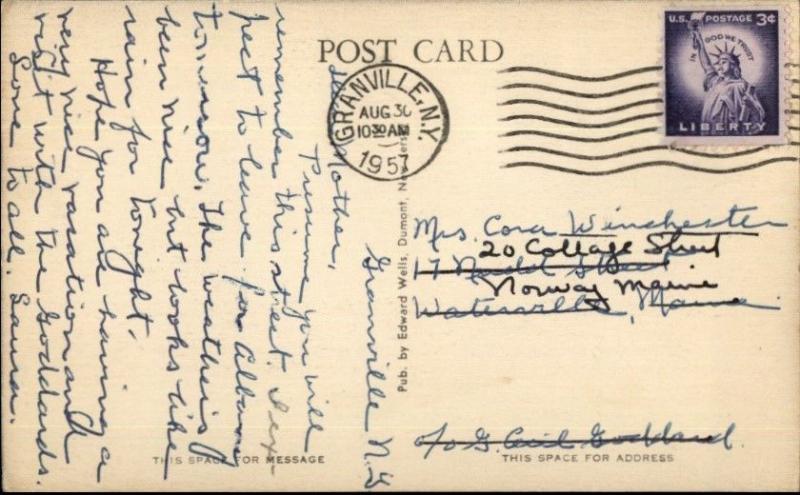 POST CARD
U.S. POSTAGE 3¢
IN GOD WE TRUST
LIBERTY
GRANVILLE, N.Y.
AUG 30
10 30 AM
1957
Granville N.Y.
Dear Mother,
Presume you will
remember this street. I ex-
pect to leave for Albany
tomorrow. The weather is
been nice but looks like
rain for tonight.
Hope you are having a
very nice vacation and
visit with the Goddards.
Love to all. Laura.
Pub. by Edward Wells, Dumont, New Jersey
Mrs. Cora Winchester
20 Cottage Street
17 Street
Norway Maine
Waterville, Maine
c/o G. Cecil Goddard.
THIS SPACE FOR MESSAGE
THIS SPACE FOR ADDRESS